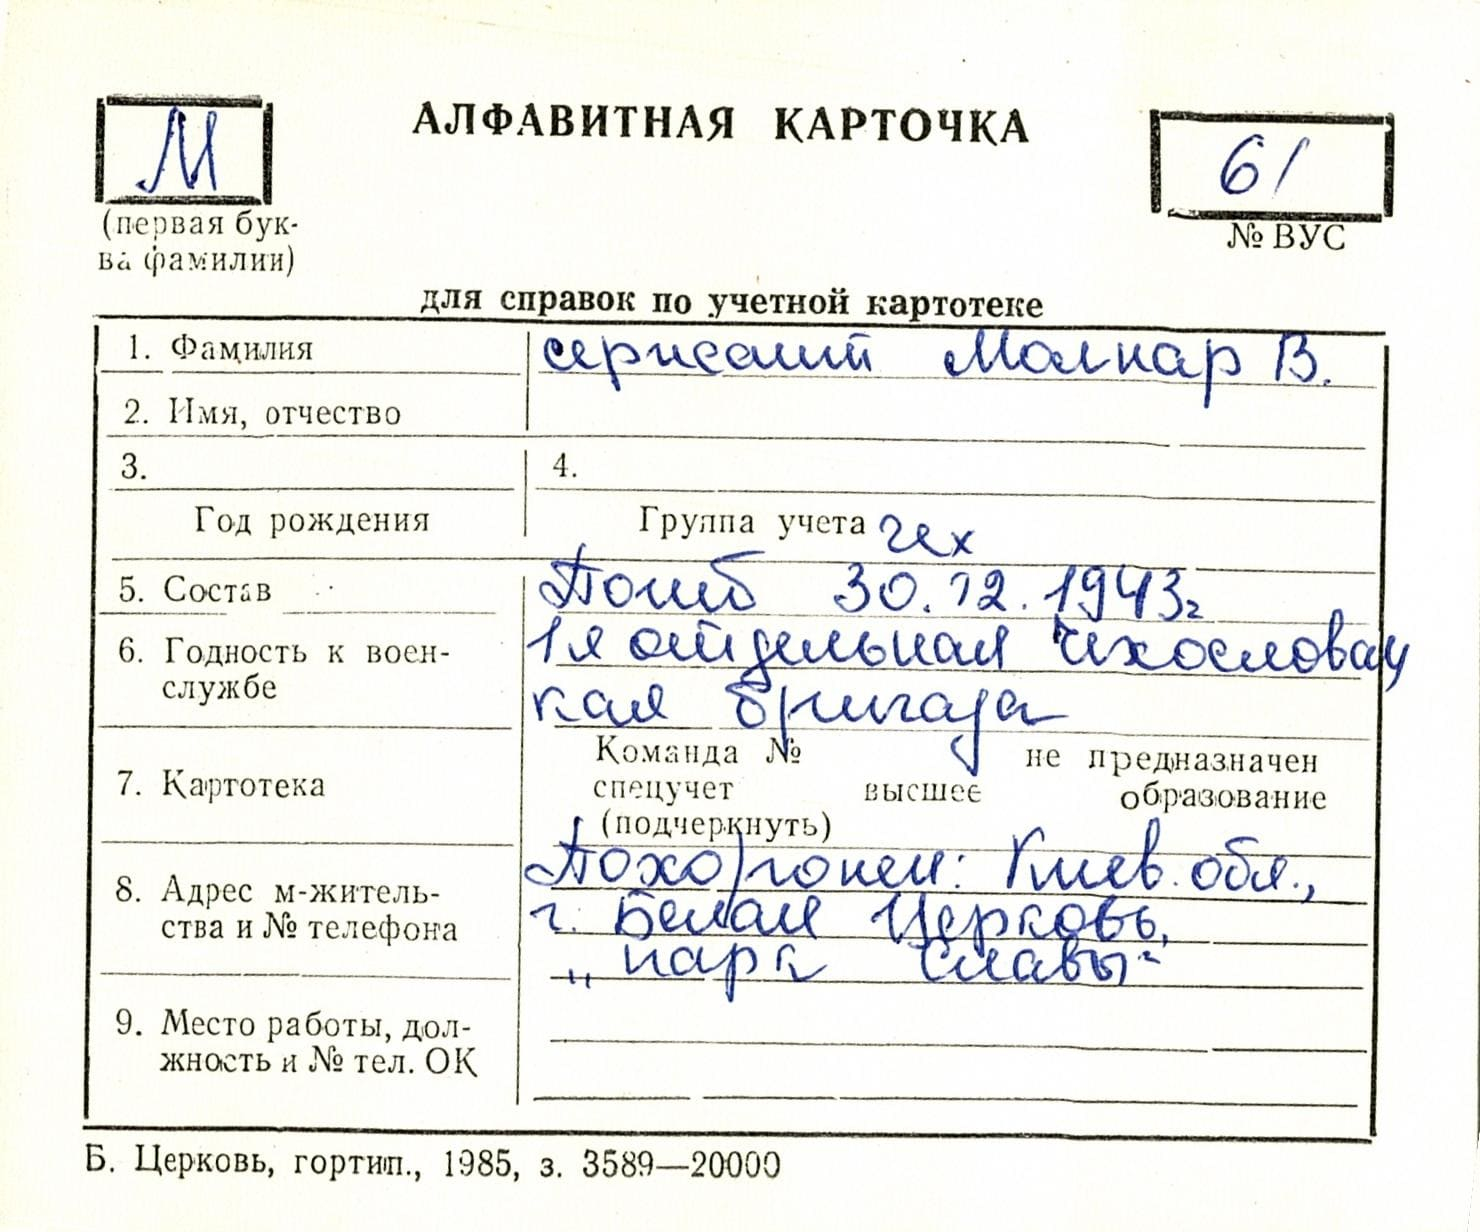 АЛФАВИТНАЯ КАРТОЧКА
М
61
(первая бук-
ва фамилии)
№ ВУС
для справок по учетной картотеке
1. Фамилия сержант Молнар В.
2. Имя, отчество
3. 4.
Год рождения Группа учета чех
5. Состав Погиб 30.12.1943г
6. Годность к воен- 1я отдельная Чехословац
службе кая бригада
Команда № не предназначен
7. Картотека спецучет высшее образование
(подчеркнуть)
8. Адрес м-житель- Похоронен: Киев. обл.,
ства и № телефона г. Белая Церковь,
„парк Славы"
9. Место работы, дол-
жность и № тел. ОК
Б. Церковь, гортип., 1985, з. 3589—20000